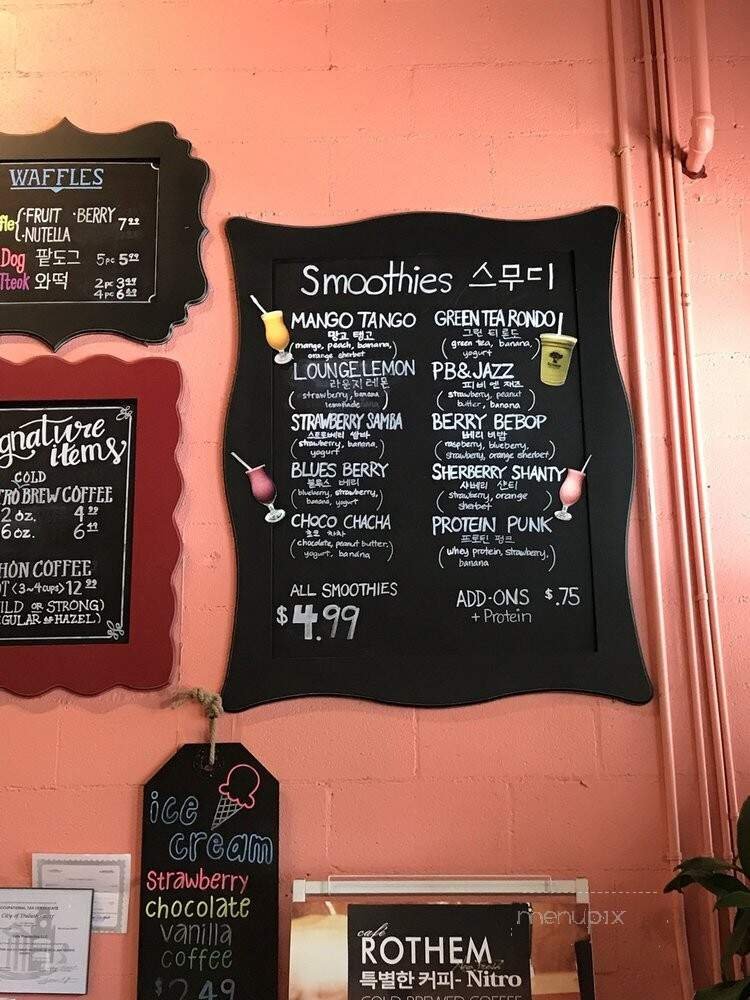 WAFFLES
·FRUIT ·BERRY 7.99
·NUTELLA
Dog 팥도그 5pc 5.99
Tteok 와떡 2pc 3.99
4pc 6.99
gnature
items
COLD
TRO BREW COFFEE
2 oz. 4.99
6 oz. 6.49
HON COFFEE
OT <3~4 cups> 12.99
ILD OR STRONG)
GULAR OR HAZEL)
Smoothies 스무디
MANGO TANGO
망고 탱고
(mango, peach, banana,
orange sherbet)
LOUNGE LEMON
라운지 레몬
(strawberry, banana
lemonade)
STRAWBERRY SAMBA
스트로베리 쌈바
(strawberry, banana,
yogurt)
BLUES BERRY
블루스 베리
(blueberry, strawberry,
banana, yogurt)
CHOCO CHACHA
초코 차차
(chocolate, peanut butter,
yogurt, banana)
ALL SMOOTHIES
$4.99
GREEN TEA RONDO
그린 티 론도
(green tea, banana,
yogurt)
PB&JAZZ
피비 앤 재즈
(strawberry, peanut
butter, banana)
BERRY BEBOP
베리 비밥
(raspberry, blueberry,
strawberry, orange sherbet)
SHERBERRY SHANTY
샤베리 샨티
(strawberry, orange
sherbet)
PROTEIN PUNK
프로틴 펑크
(whey protein, strawberry,
banana)
ADD-ONS $.75
+ Protein
ice
cream
strawberry
chocolate
vanilla
coffee
$2.49
OCCUPATIONAL TAX CERTIFICATE
City of Duluth
café
ROTHEM
특별한 커피- Nitro
COLD BREWED COFFEE
menupix